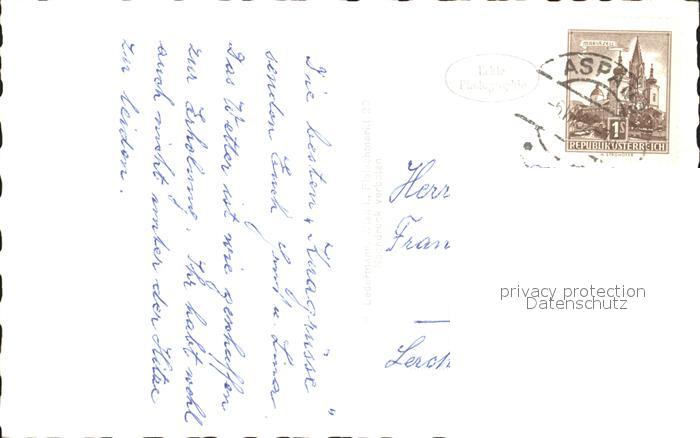 Die besten „Kurgrüsse“
senden Euch
Das Wetter ist wie geschaffen
zur Erholung. Ihr habt wohl
auch nicht unter der Hitze
zu leiden.
Echte
Photographie
Nachdruck verboten
ASPA
MARIAZELL
1S
REPUBLIK ÖSTERREICH
Herr
Fran
Lerch
privacy protection
Datenschutz